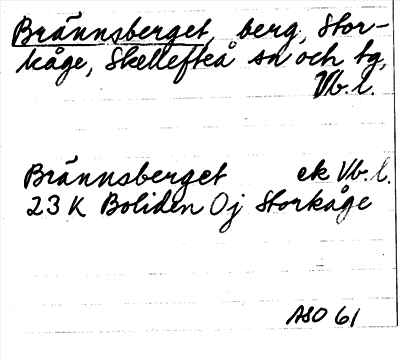 Brännsberget, berg, Stor-
kåge, Skellefteå sn och tg,
Vb.l.
Brännsberget ek Vb.l.
23 K Boliden 0j Storkåge
ASO 61